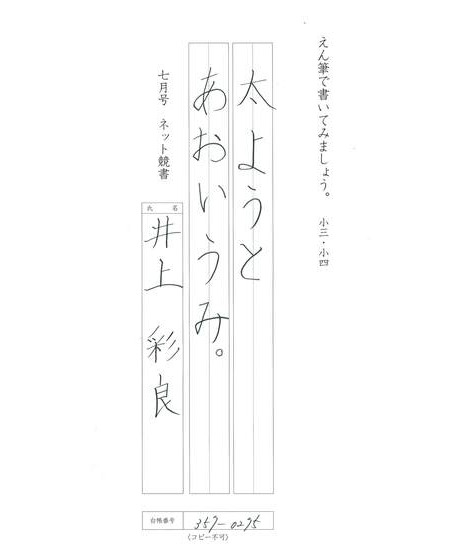 えん筆で書いてみましょう。 小三・小四
太ようと
あおいうみ。
七月号 ネット競書
氏名
井上 彩良
台帳番号 357-0295
(コピー不可)